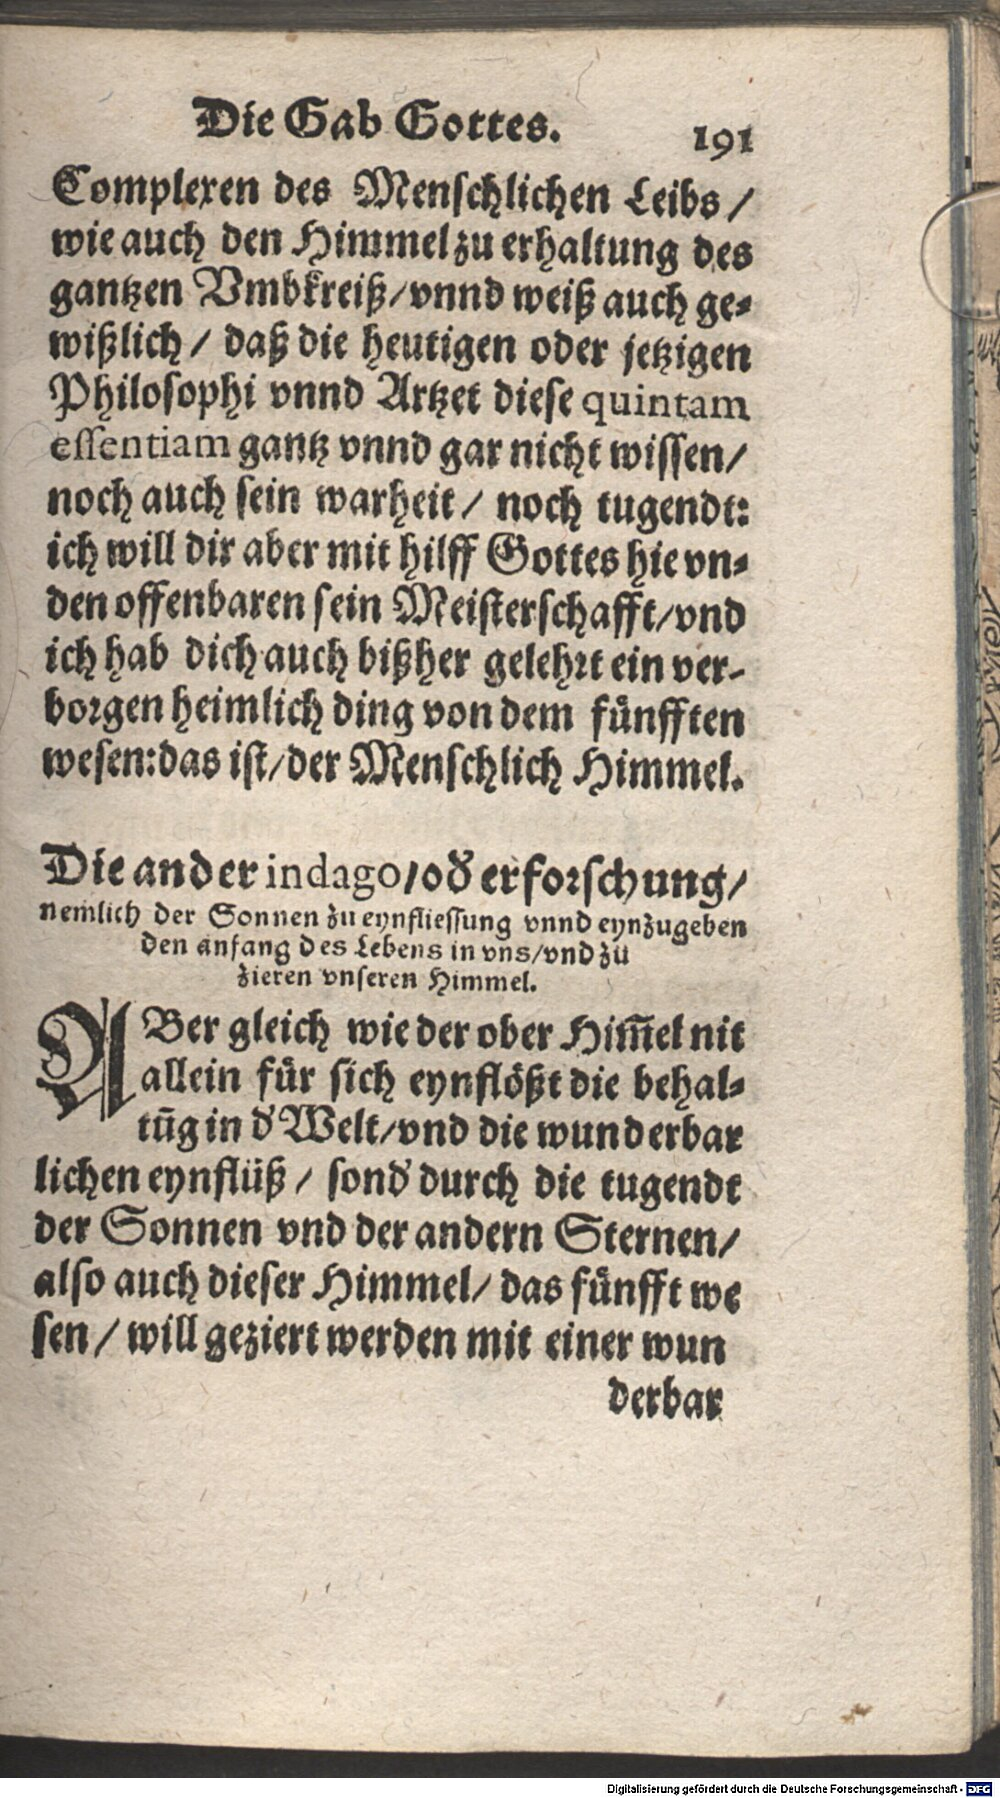 Die Gab Gottes. 191
Complexen des Menschlichen Leibs /
wie auch den Himmel zu erhaltung des
gantzen Vmbkreiß/vnnd weiß auch ge-
wißlich / daß die heutigen oder jetzigen
Philosophi vnnd Artzet diese quintam
essentiam gantz vnnd gar nicht wissen/
noch auch sein warheit / noch tugendt:
ich will dir aber mit hilff Gottes hie vn-
den offenbaren sein Meisterschafft/vnd
ich hab dich auch bißher gelehrt ein ver-
borgen heimlich ding von dem fünfften
wesen:das ist/der Menschlich Himmel.
Die ander indago/oď erforschung/
nemlich der Sonnen zu eynfliessung vnnd eynzugeben
den anfang des Lebens in vns/vnd zů
zieren vnseren Himmel.
ABer gleich wie der ober Him̅el nit
allein für sich eynflößt die behal-
tūg in ď Welt/vnd die wunderbar
lichen eynflüß / sonď durch die tugendt
der Sonnen vnd der andern Sternen/
also auch dieser Himmel/ das fünfft we
sen / will geziert werden mit einer wun
derbar
Digitalisierung gefördert durch die Deutsche Forschungsgemeinschaft - DFG